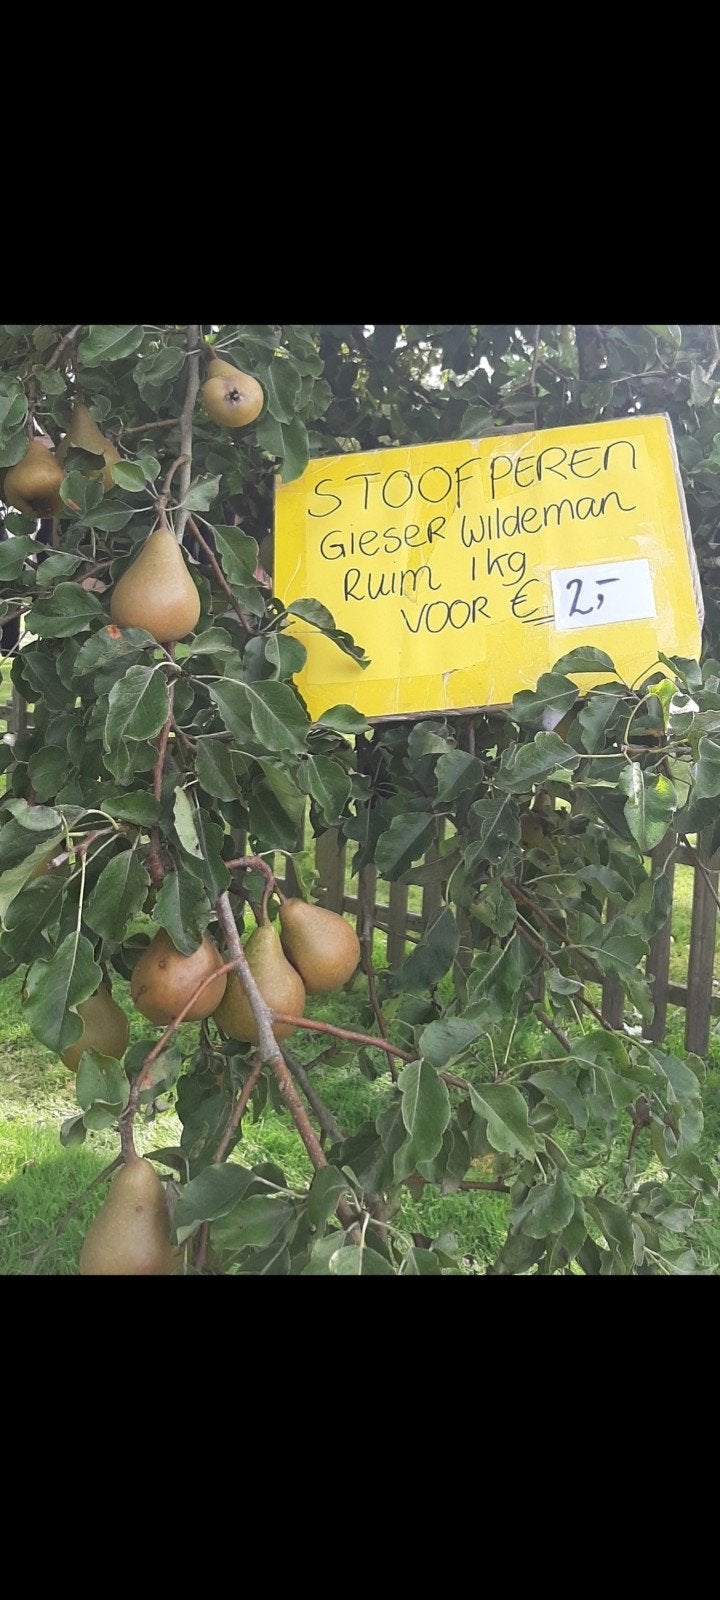 STOOFPEREN
Gieser Wildeman
Ruim 1kg
VOOR € 2,-